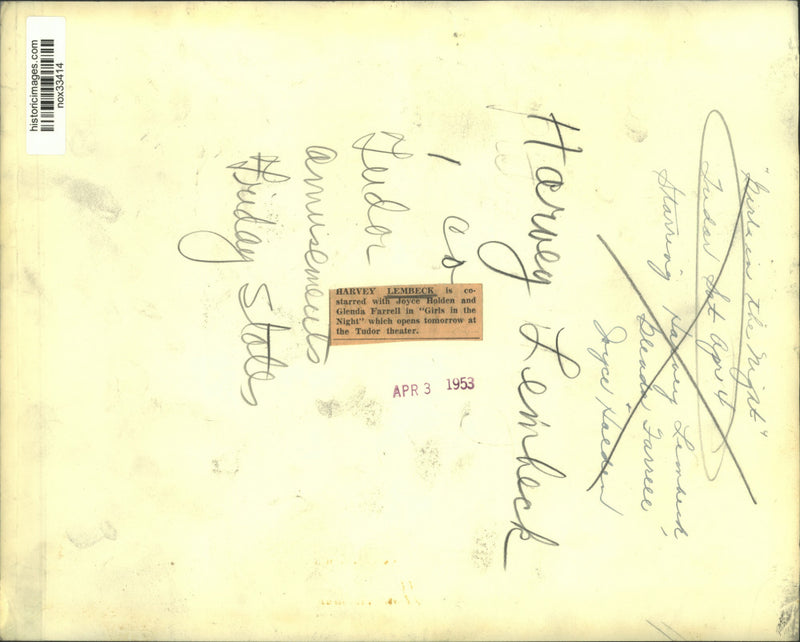 historicimages.com
nox33414
"Girls in the Night"
Tudor Sat Apr 4
Starring Harvey Lembeck,
Glenda Farrell
Joyce Holden
Harvey Lembeck
1 co
Tudor
amusements
Friday States
HARVEY LEMBECK is co-
starred with Joyce Holden and
Glenda Farrell in "Girls in the
Night" which opens tomorrow at
the Tudor theater.
APR 3 1953